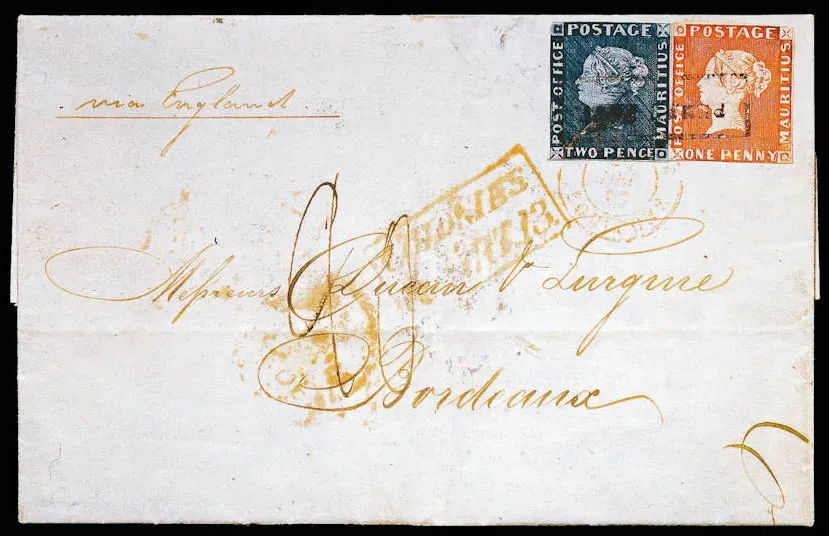 via England
POSTAGE
POST OFFICE
MAURITIUS
TWO PENCE
POSTAGE
POST OFFICE
MAURITIUS
ONE PENNY
COLONIES
ART.13.
Messieurs Ducau & Lurguie
Bordeaux